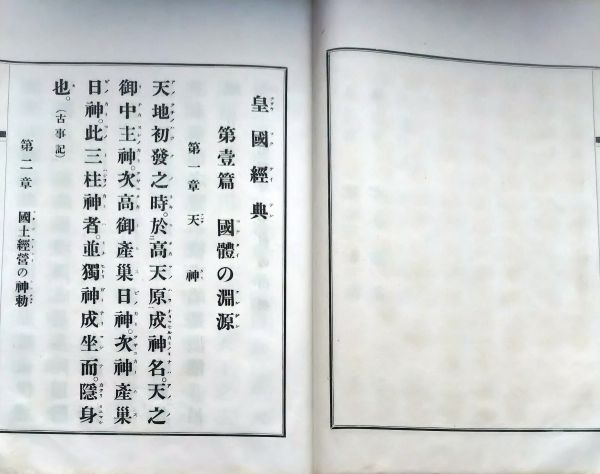 皇國經典
第壹篇 國體の淵源
第一章 天神
天地初發之時。於高天原成神名。天之
御中主神。次高御產巢日神。次神產巢
日神。此三柱神者。並獨神成坐而。隱身
也。（古事記）
第二章 國土經營の神勅